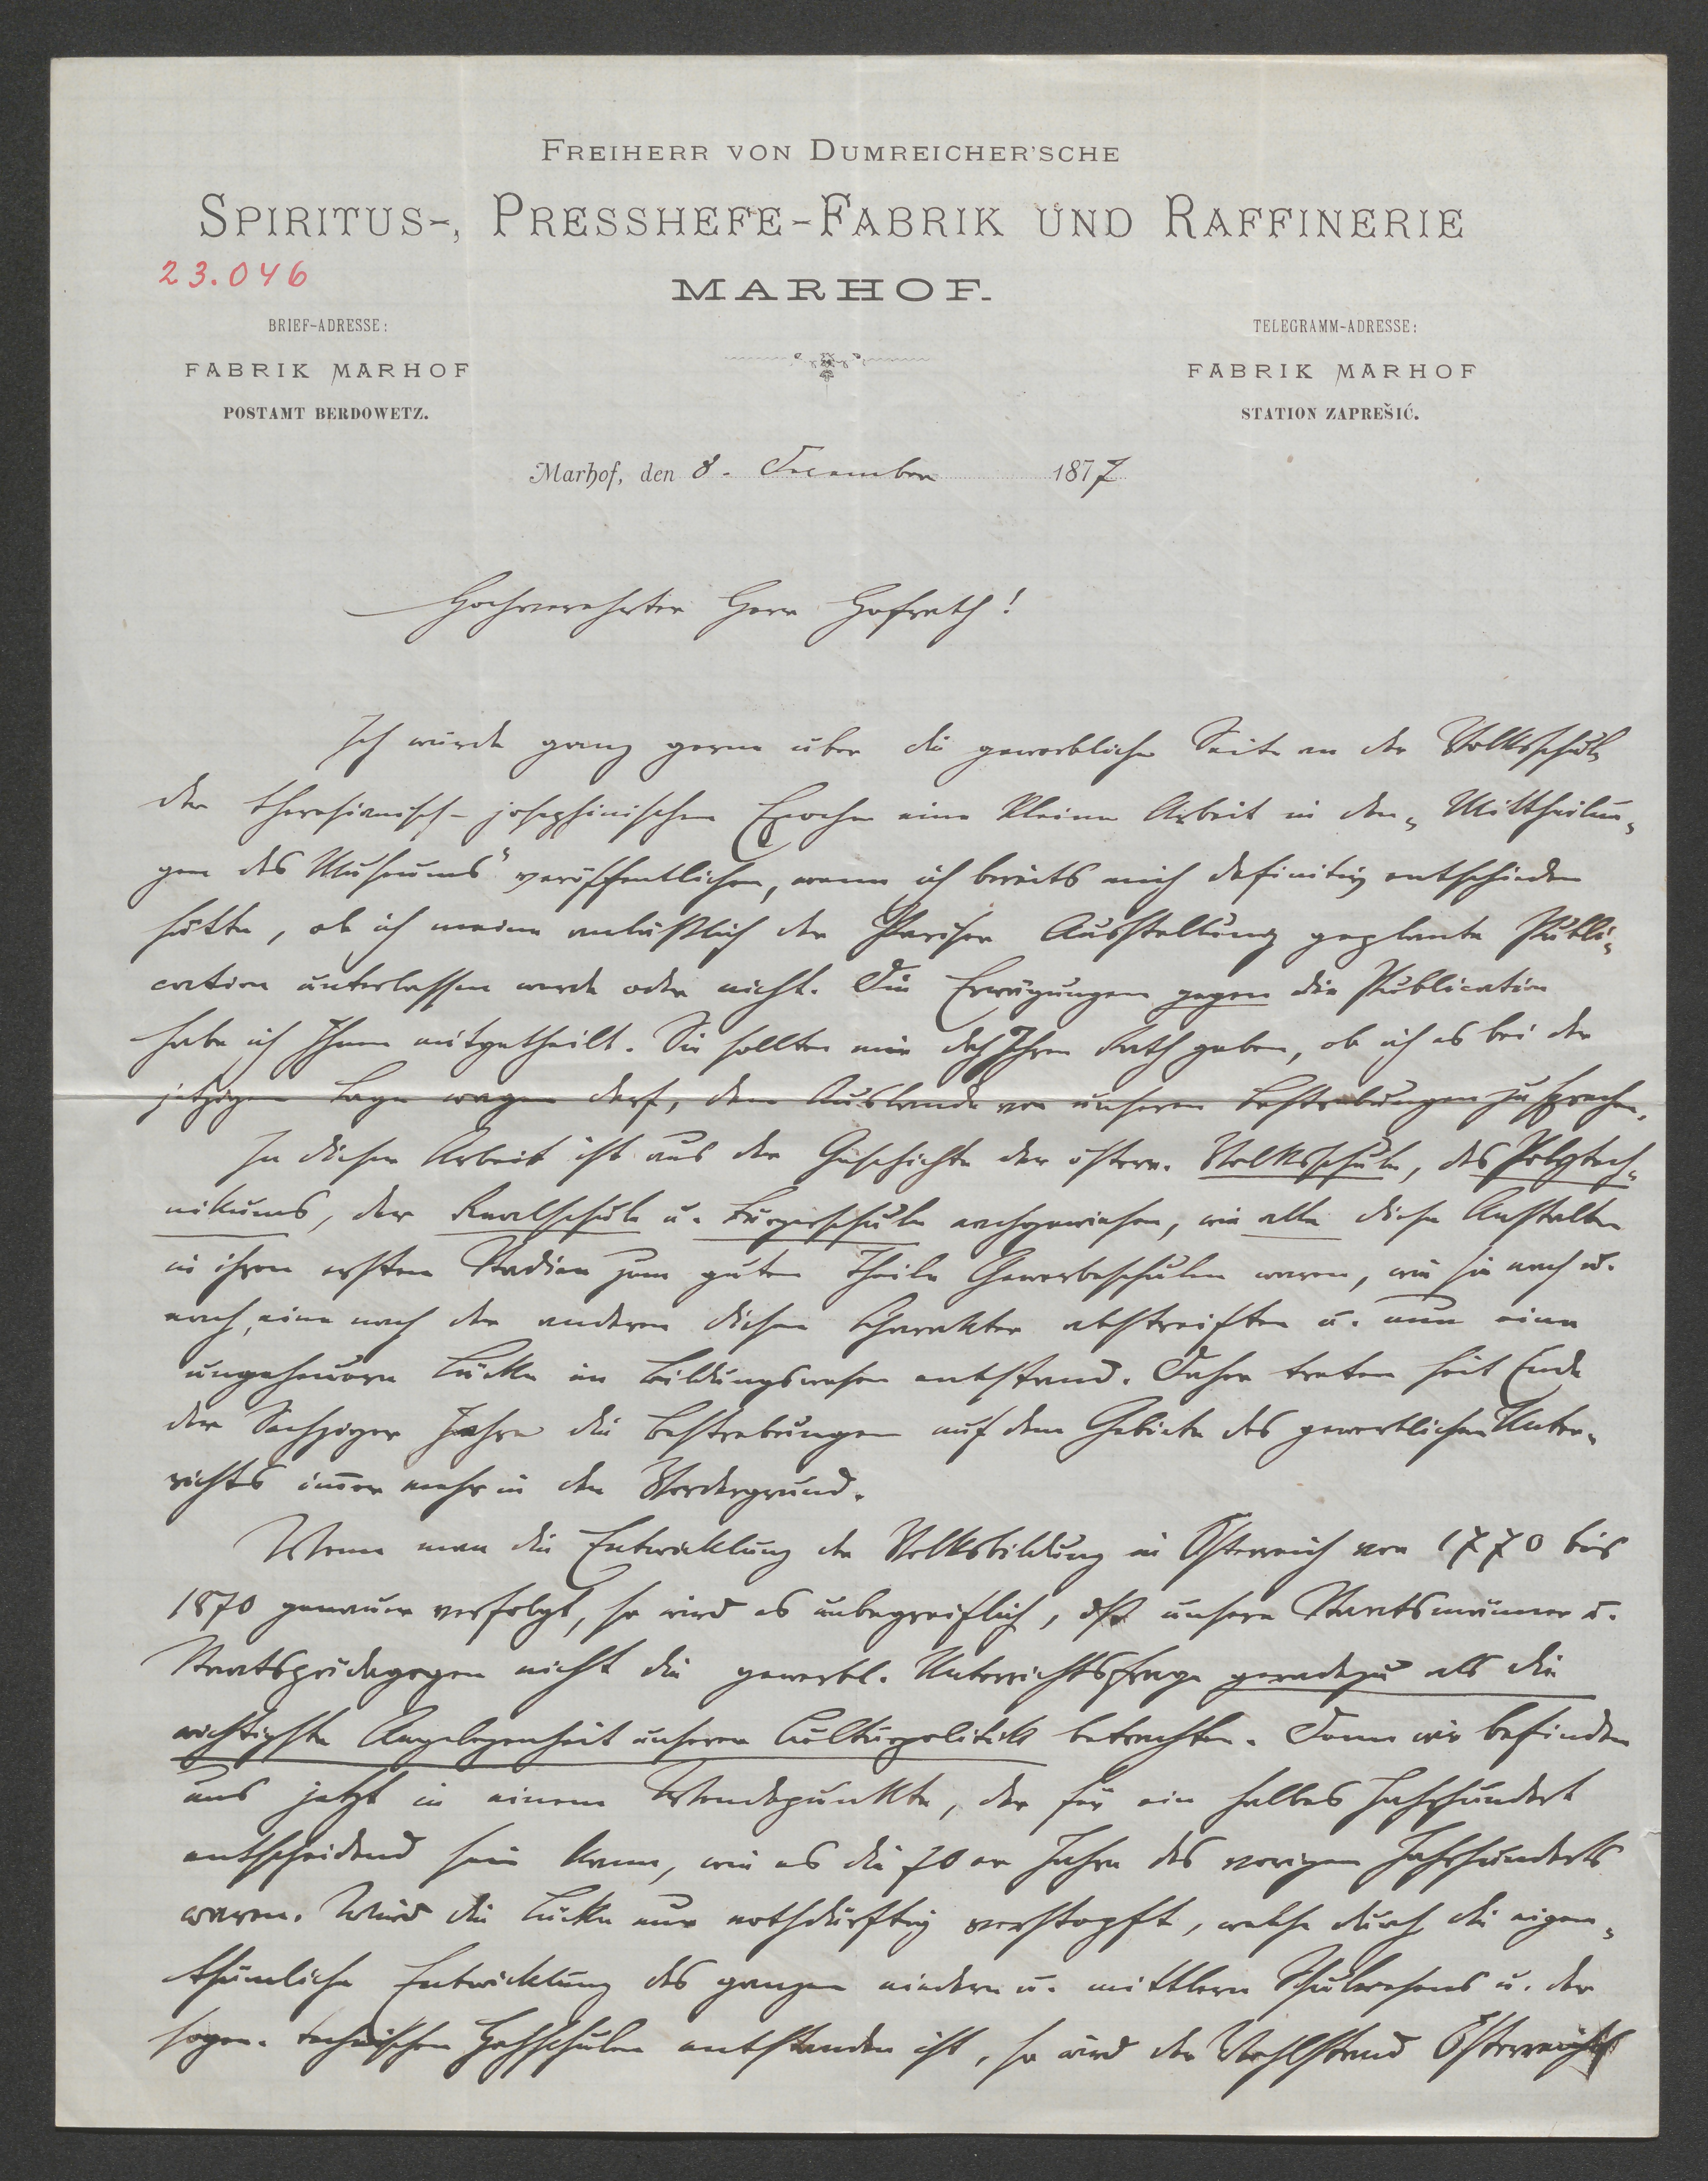 FREIHERR VON DUMREICHER'SCHE
SPIRITUS-, PRESSHEFE-FABRIK UND RAFFINERIE
23.046
MARHOF.
BRIEF-ADRESSE:
TELEGRAMM-ADRESSE:
FABRIK MARHOF
FABRIK MARHOF
POSTAMT BERDOWETZ.
STATION ZAPREŠIĆ.
Marhof, den 8. December 1877
Hochverehrter Herr Hofrath!
Ich würde ganz gerne über die gewerbliche Seite an der Volksschule
der theresianisch-josephinischen Epoche eine kleine Arbeit in den „Mittheilun-
gen des Museums" veröffentlichen, wenn ich bereits mich definitiv entschieden
hätte, ob ich meine anläßlich der Pariser Ausstellung geplante Publi-
cation unterlassen werde oder nicht. Die Erwägungen gegen die Publication
habe ich Ihnen mitgetheilt. Sie sollten mir doch Ihren Rath geben, ob ich es bei der
jetzigen Lage wagen darf, dem Auslande von unseren Bestrebungen zu sprechen.
In dieser Arbeit ist aus der Geschichte der österr. Volksschule, des Polytech-
nikums, der Realschule u. Bürgerschule nachgewiesen, wie alle diese Anstalten
in ihren ersten Stadien zum guten Theile Gewerbeschulen waren, wie sie nach u.
nach, eine nach der anderen diesen Charakter abstreiften u. nun eine
ungeheuere Lücke im Bildungswesen entstand. Daher treten seit Ende
der Sechziger Jahre die Bestrebungen auf dem Gebiete des gewerblichen Unter-
richts immer mehr in den Vordergrund.
Wenn man die Entwicklung der Volksbildung in Österreich von 1770 bis
1870 genauer verfolgt, so wird es unbegreiflich, daß unsere Staatsmänner u.
Staatspädagogen nicht die gewerbl. Unterrichtsfrage geradezu als die
wichtigste Angelegenheit unserer Culturpolitik betrachten. Denn wir befinden
uns jetzt in einem Wendepunkte, der für ein halbes Jahrhundert
entscheidend sein kann, wie es die 70er Jahre des vorigen Jahrhunderts
waren. Wird die Lücke nur nothdürftig verstopft, welche durch die eigen-
thümliche Entwicklung des ganzen niedern u. mittlern Schulwesens u. der
sogen. technischen Hochschulen entstanden ist, so wird der Wohlstand Österreichs